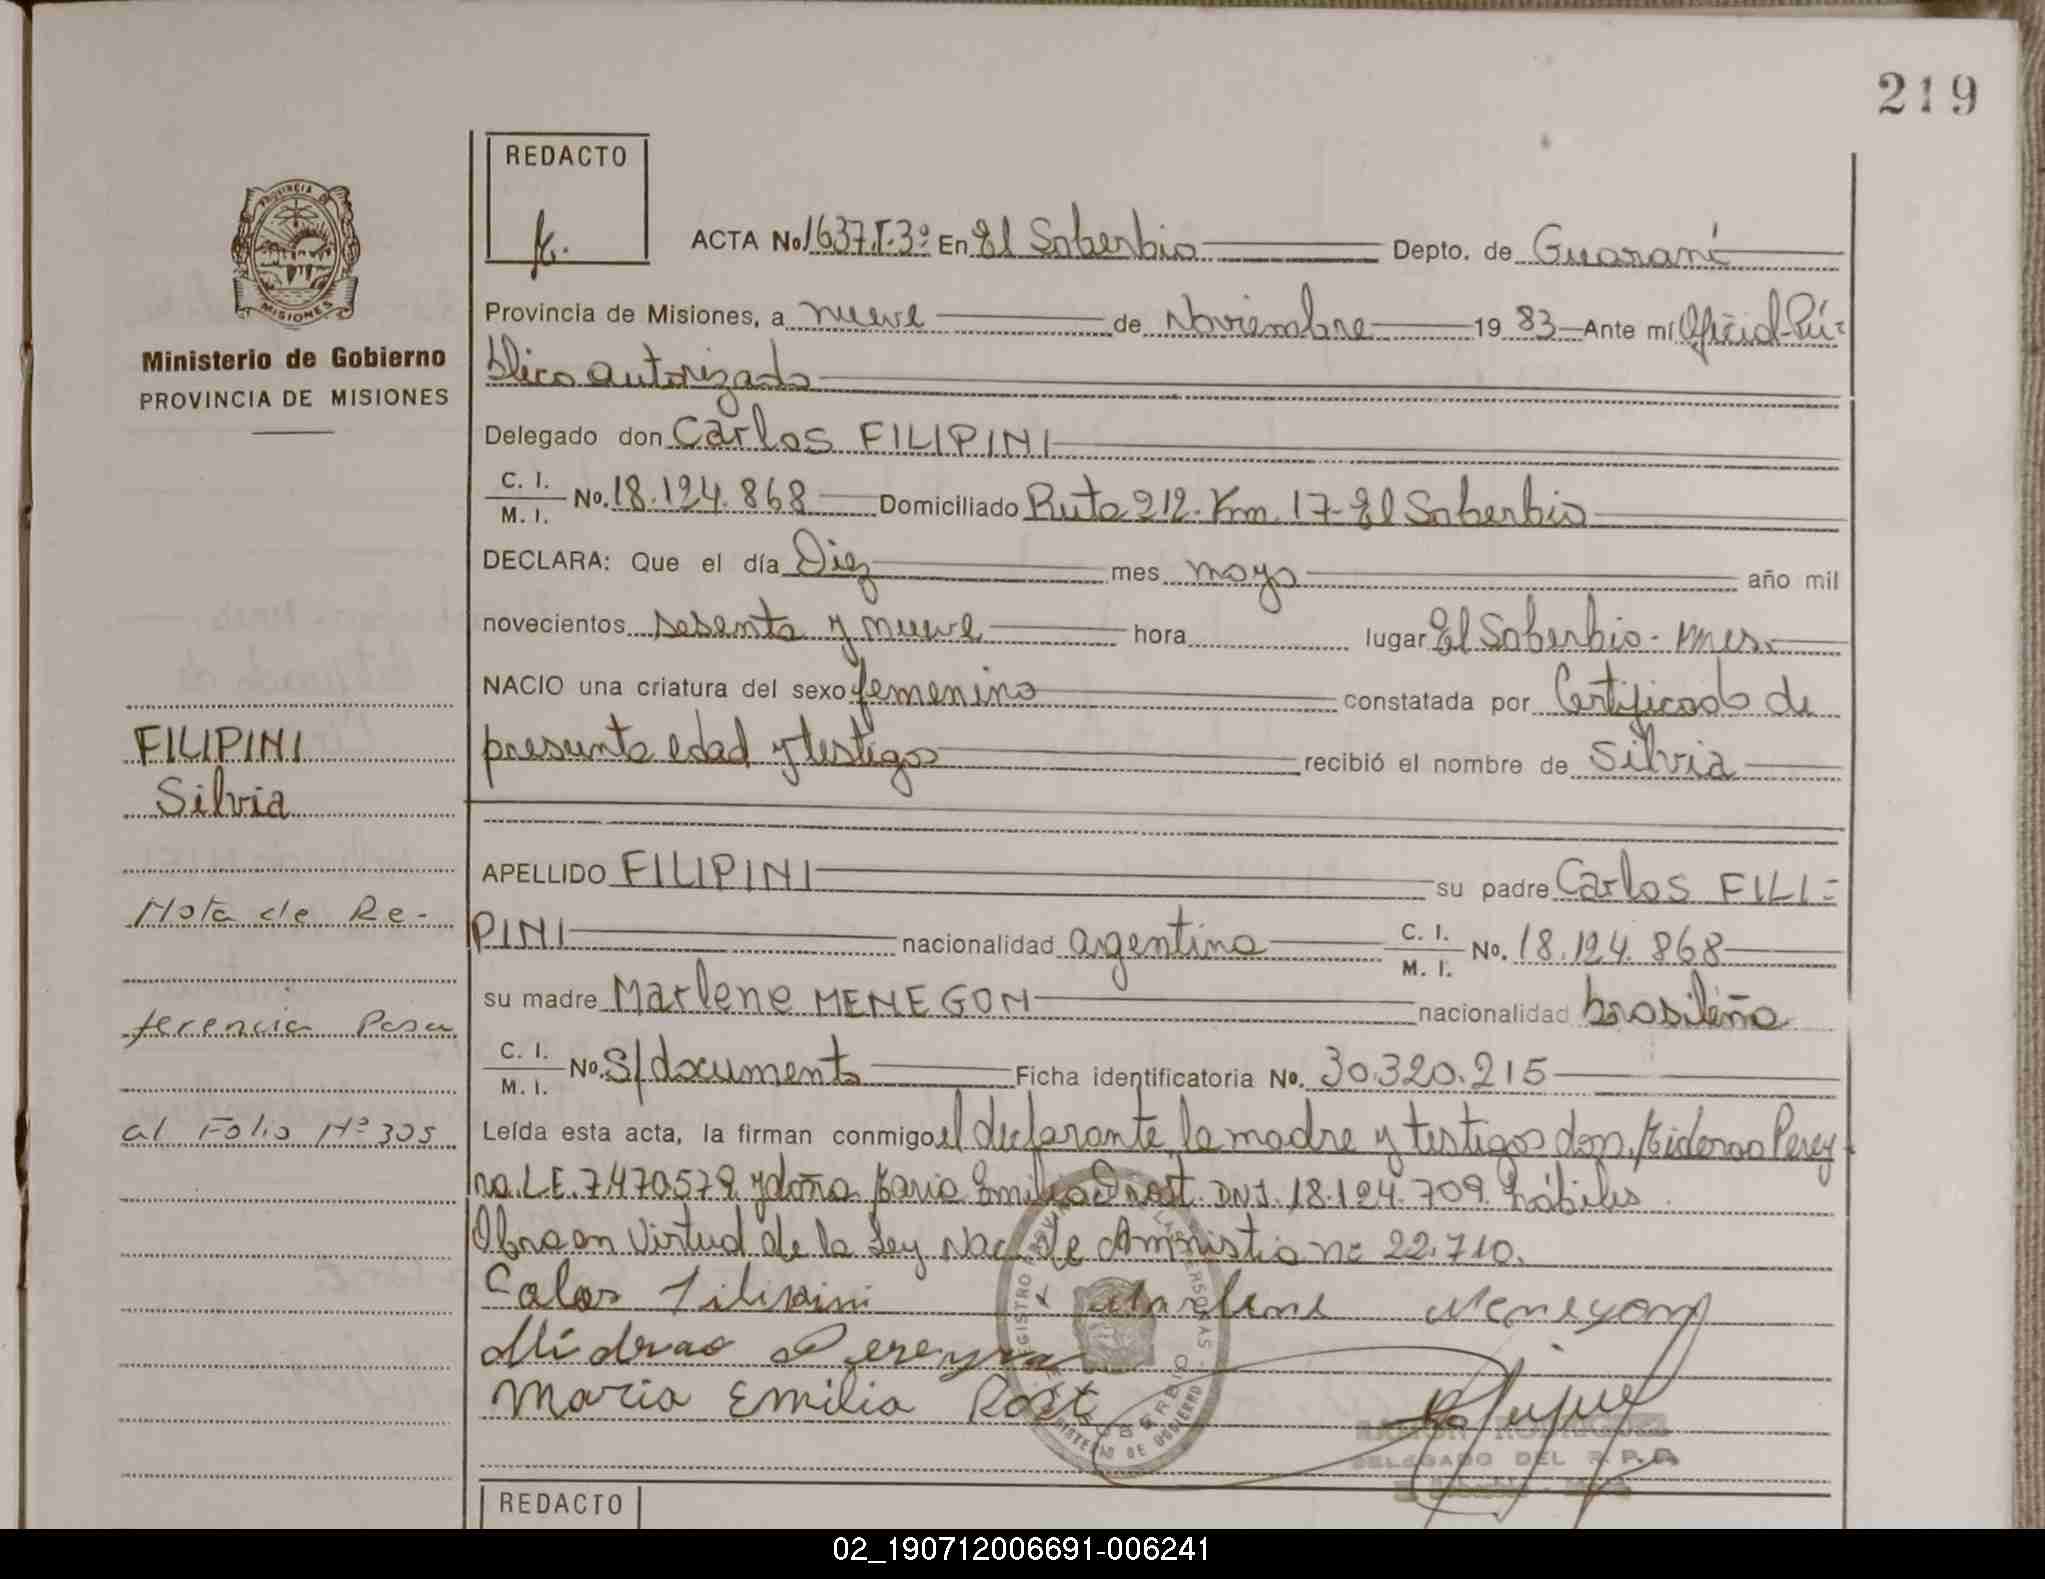 219
REDACTO
ACTA No. 1637.T.3º En El Soberbio Depto. de Guaraní
Provincia de Misiones, a nueve de Noviembre 19 83 Ante mí Oficial Pú=
blico autorizado
Delegado don Carlos FILIPINI
C. I.
M. I. No. 18.124.868 Domiciliado Ruta 212. Km. 17- El Soberbio
DECLARA: Que el día Diez mes mayo año mil
novecientos sesenta y nueve hora lugar El Soberbio - Mnes.
NACIO una criatura del sexo femenino constatada por Certificado de
presunta edad y testigos recibió el nombre de Silvia
APELLIDO FILIPINI su padre Carlos FILI=
PINI nacionalidad argentina C. I.
M. I. No. 18.124.868
su madre Marlene MENEGON nacionalidad brasileña
C. I.
M. I. No. S/documento Ficha identificatoria No. 30.320.215
Leída esta acta, la firman conmigo el declarante, la madre y testigos don Perey
ra. L.E. 7.470.579 y doña Maria Emilia Rost. DNI. 18.124.709 hábiles.
Obran en Virtud de la Ley Nac. de Amnistia nº 22.710.
Calos Filipini Marlene Menegon
Pereyra
Maria Emilia Rost
RAMON RODRIGUEZ
DELEGADO DEL R. P. P.
REDACTO
PROVINCIA
MISIONES
Ministerio de Gobierno
PROVINCIA DE MISIONES
FILIPINI
Silvia
Nota de Re-
ferencia Pasa
al Folio Nº 305
02_190712006691-006241